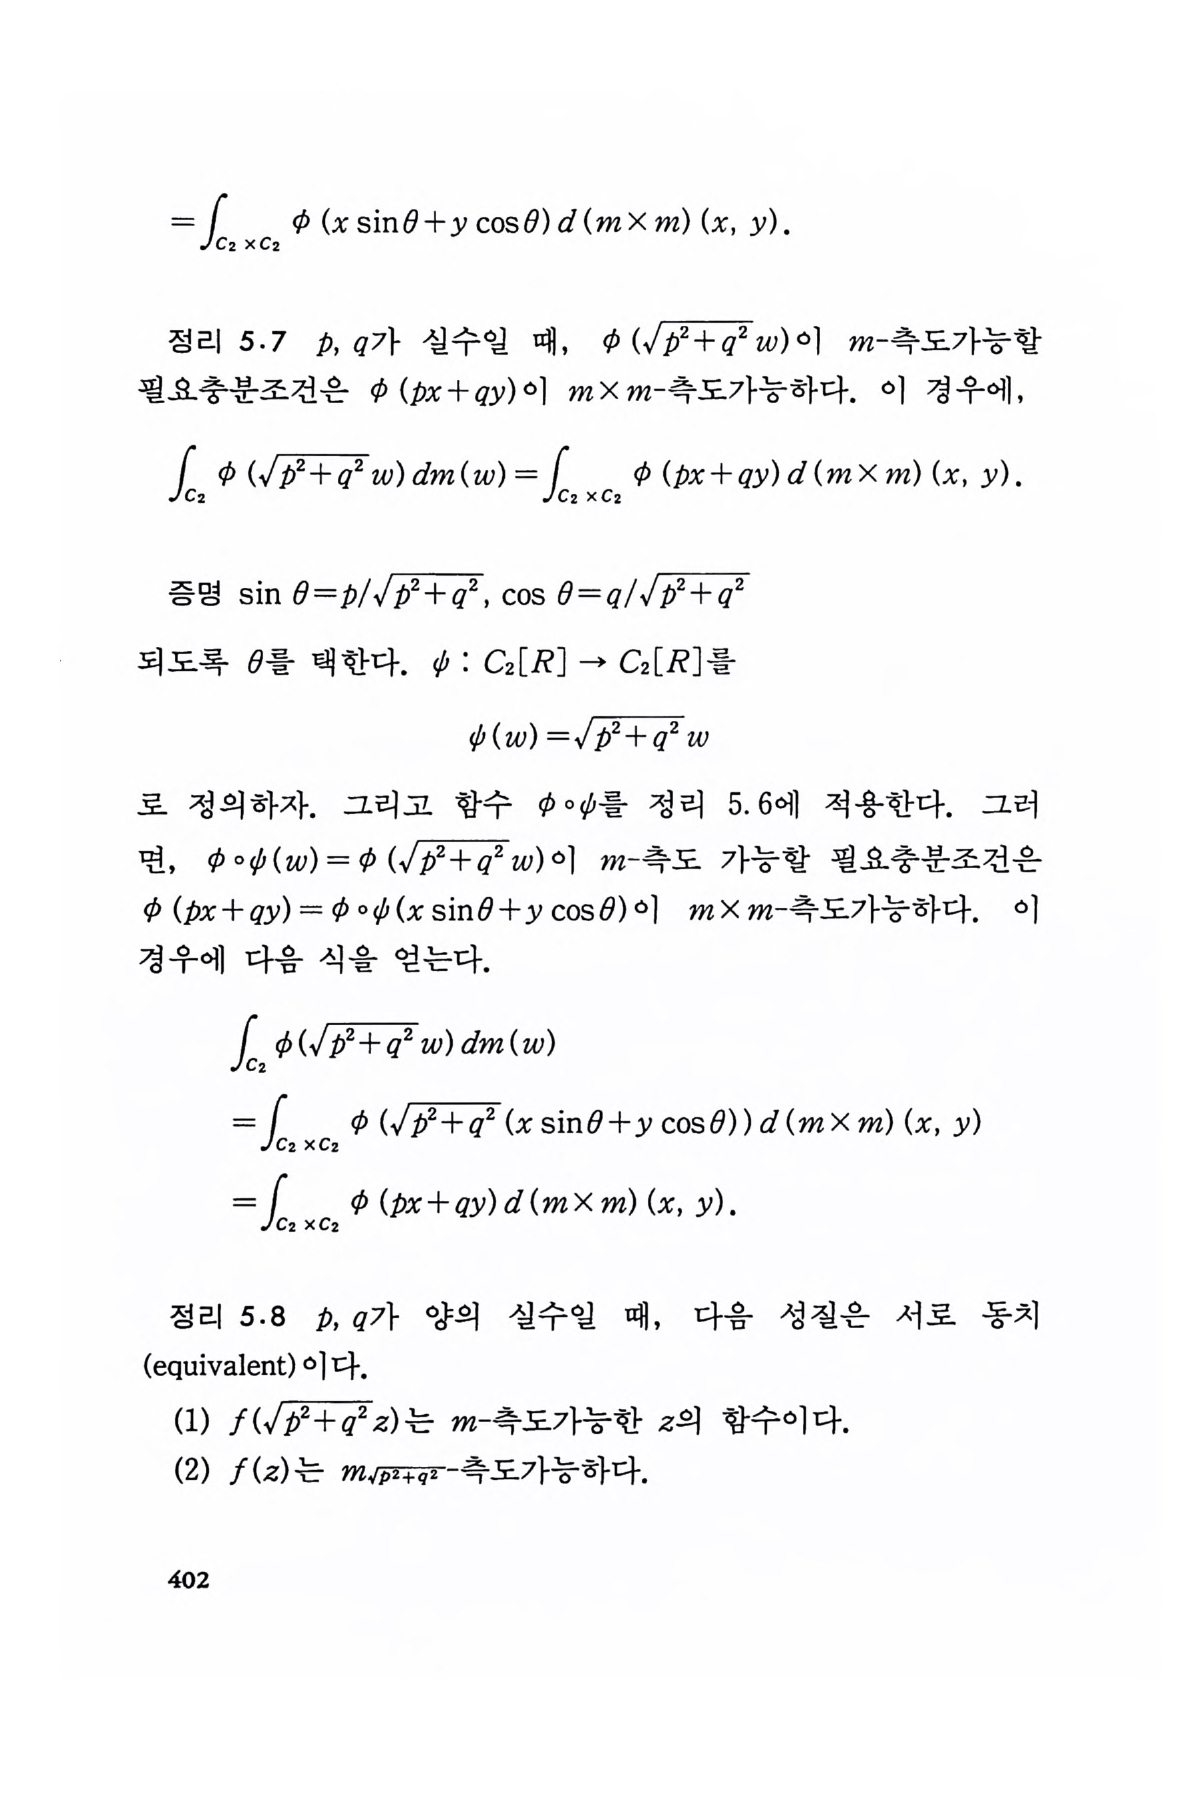 =∫_{C₂×C₂} φ (x sinθ+y cosθ) d (m×m) (x, y).
정리 5.7 p, q가 실수일 때, φ (√(p²+q²) w)이 m-측도가능할
필요충분조건은 φ (px+qy)이 m×m-측도가능하다. 이 경우에,
∫_{C₂} φ (√(p²+q²) w) dm(w)=∫_{C₂×C₂} φ (px+qy) d (m×m) (x, y).
증명 sin θ=p/√(p²+q²), cos θ=q/√(p²+q²)
되도록 θ를 택한다. ψ : C₂[R] → C₂[R]를
ψ(w)=√(p²+q²) w
로 정의하자. 그리고 함수 φ∘ψ를 정리 5.6에 적용한다. 그러
면, φ∘ψ(w)=φ (√(p²+q²) w)이 m-측도 가능할 필요충분조건은
φ (px+qy)=φ∘ψ(x sinθ+y cosθ)이 m×m-측도가능하다. 이
경우에 다음 식을 얻는다.
∫_{C₂} φ(√(p²+q²) w) dm(w)
=∫_{C₂×C₂} φ (√(p²+q²) (x sinθ+y cosθ)) d (m×m) (x, y)
=∫_{C₂×C₂} φ (px+qy) d (m×m) (x, y).
정리 5.8 p, q가 양의 실수일 때, 다음 성질은 서로 동치
(equivalent)이다.
(1) f(√(p²+q²) z)는 m-측도가능한 z의 함수이다.
(2) f(z)는 m_{√(p²+q²)}-측도가능하다.
402